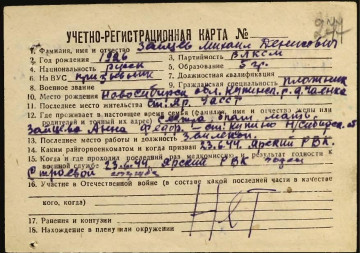 УЧЕТНО-РЕГИСТРАЦИОННАЯ КАРТА №
1. Фамилия, имя и отчество Зайцев Михаил Денисович
2. Год рождения 1926 3. Партийность ВЛКСМ
4. Национальность русск 5. Образование 5 гр.
6. На ВУС призывник 7. Должностная квалификация
8. Военное звание 9. Гражданская специальность плотник
10. Место рождения Новосибирск обл. Купинск. р.
11. Последнее место жительства ст. Яр.
12. Где проживает в настоящее время семья (фамилия, имя и отчество жены или
родителей и точный их адрес) мать
Зайцева Анна Федор. ст. Купино
13. Последнее место работы и должность
14. Каким райгорвоенкоматом и когда призван 23.6.44. Ярский РВК.
15. Когда и где проходил последний раз медкомиссию, результат годности к
военной службе 23.6.44. Ярский РВК годен
Строевой служба
16. Участие в Отечественной войне (в составе какой последней части в качестве
кого, когда) Нет
17. Ранения и контузии
18. Нахождение в плену или окружении